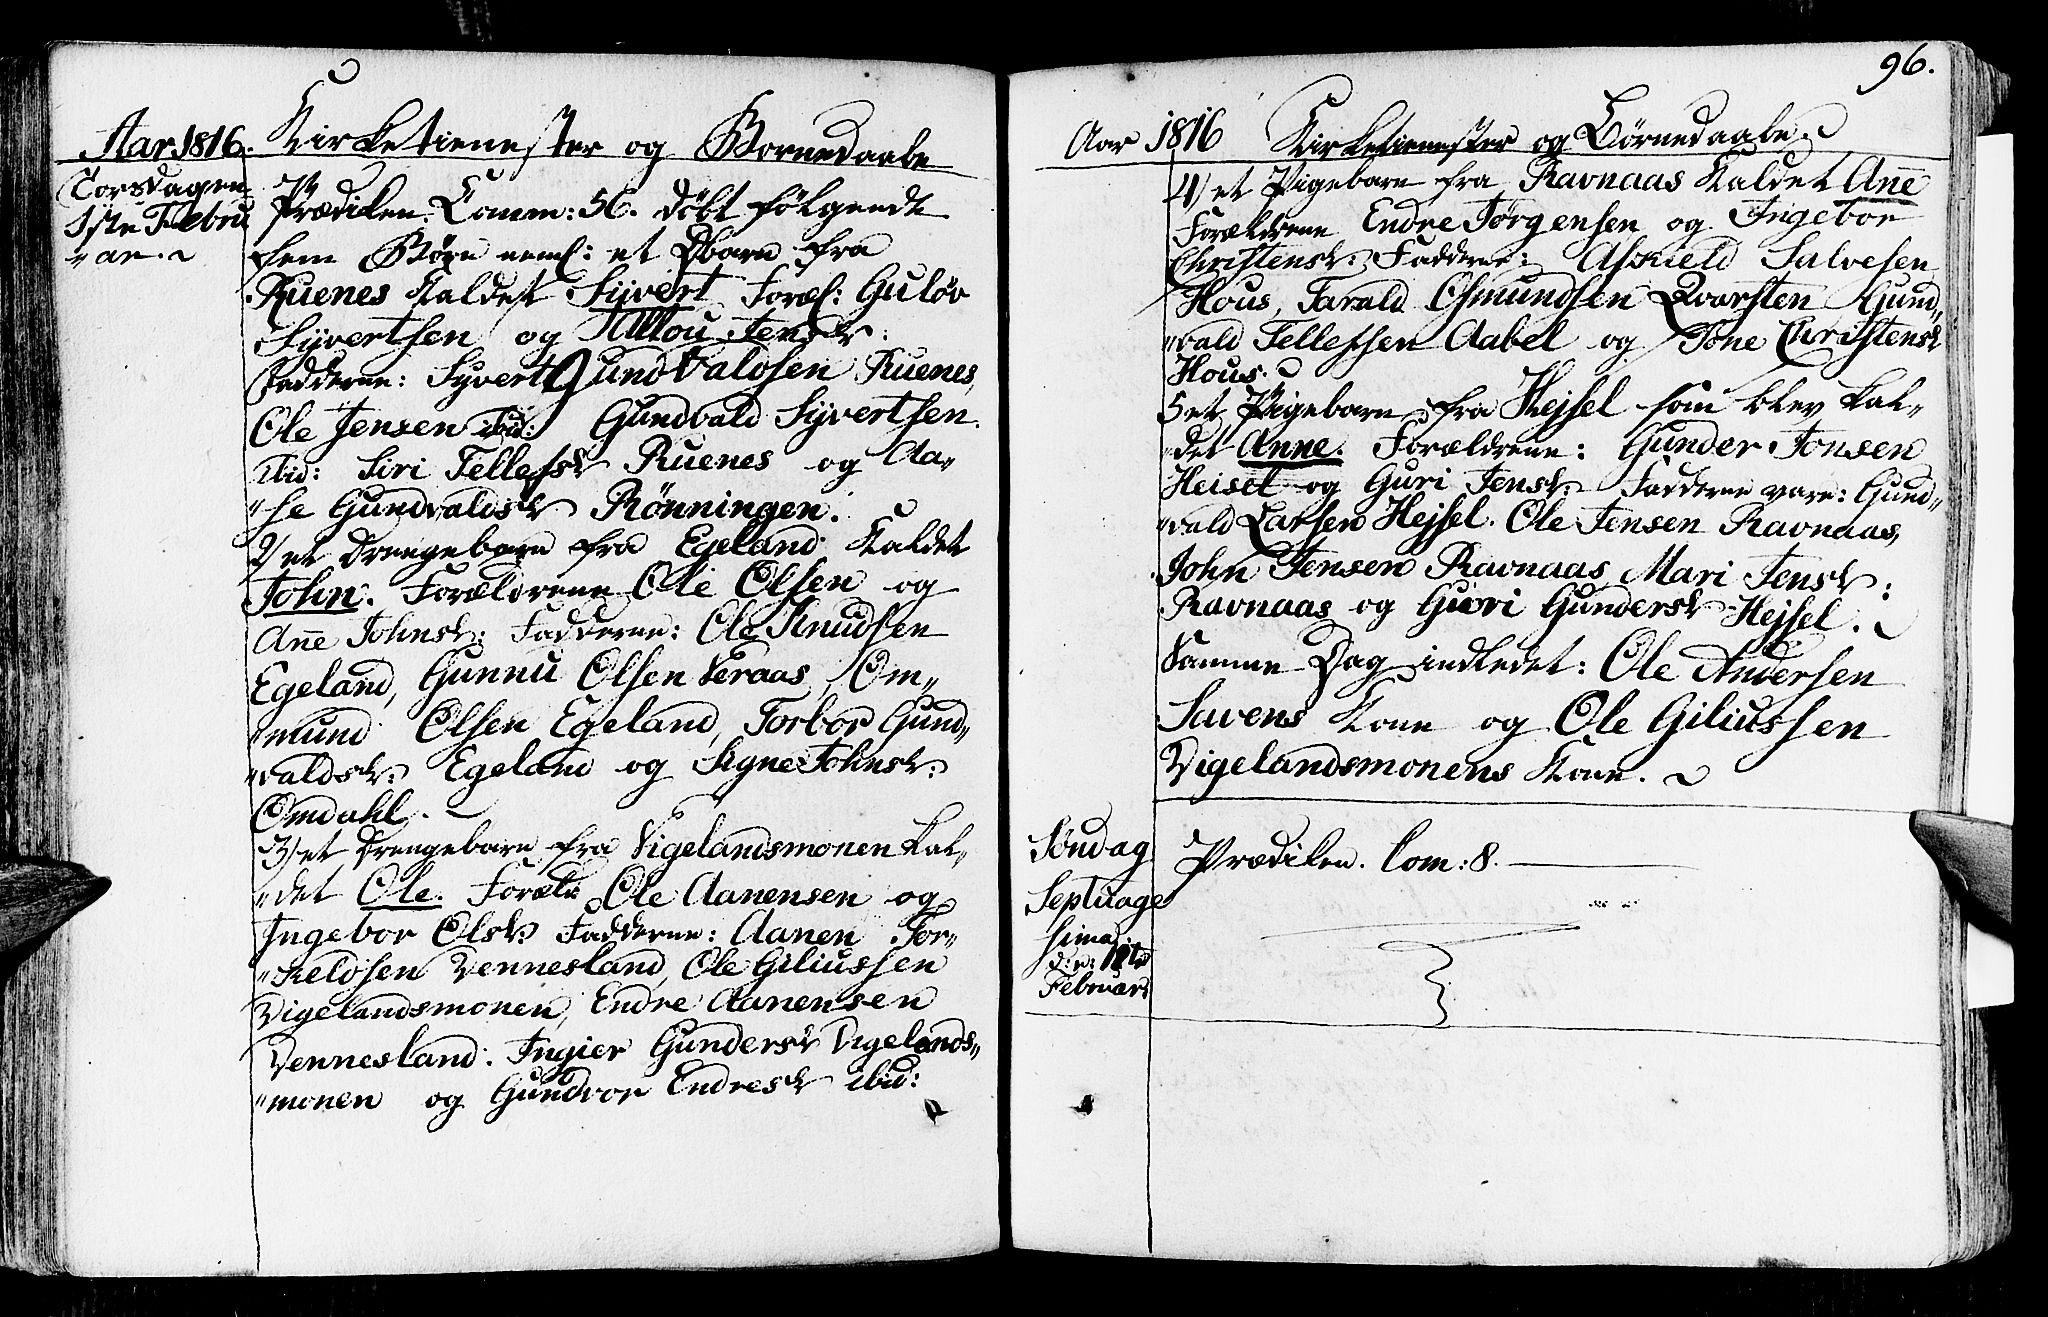 Aar 1816. Kirketienester og Børnedaabe
Torsdagen
1ste Febru
"ar.
Prædiken. Comm: 56. døbt følgende
fem Børn neml: et Dbarn fra
Ruenes kaldet Syvert Foræl: Guløv
Syvertsen og Jensdr:
Fadderne: Syvert Gundvaldsen Ruenes,
Ole Jensen ibid: Gundvald Syvertsen
ibid: Siri Tellefsdr Ruenes og Aa-
"se Gundvaldsdr Rønningen.
2) et Drengebarn fra Egeland kaldet
John. Forældrene Ole Olsen og
Ane Johnsdr: Fadderne: Ole Knudsen
Egeland, Gunnu Olsen Veraas, Om"
"mund Olsen Egeland, Torbor Gund"
"valdsdr: Egeland og Signe Johnsdr:
Omdahl.
3) et Drengebarn fra Vigelandsmonen kal"
"det Ole. Foræld Ole Aanensen og
Ingebor Olsdr: Fadderne: Aanen Tor"
"keldsen Vennesland, Ole Giliussen
Vigelandsmonen, Endre Aanensen
Vennesland. Ingier Gundersdr Vigelands"
"monen og Gundvor Endresdr ibid:
96.
Aar 1816 Kirketienester og Børnedaabe
4) et Pigebarn fra Ravnaas kaldet Ane
Forældrene Endre Jørgensen og Ingebor
Christensdr: Fadderne: Askield Salvesen
Hous, Tarald Osmundsen Qvarsten Gund"
"vald Tellefsen Aabel og Tone Christensdr
Hous.
5 et Pigebarn fra Hejsel som blev kal"
"det Anne. Forældrene: Gunder Jonsen
Heisel og Guri Jensdr: Fadderne vare: Gund"
"vald Larsen Hejsel. Ole Jensen Ravnaas,
John Jensen Ravnaas, Mari Jensdr:
Ravnaas og Guri Gundersdr Hejsel.
Samme Dag indledet: Ole Andersen
Savens Kone og Ole Giliussen
Vigelandsmonens Kone.
Søndag
Septuage
sima
d: n:
Februar
Prædiken. Com: 8.